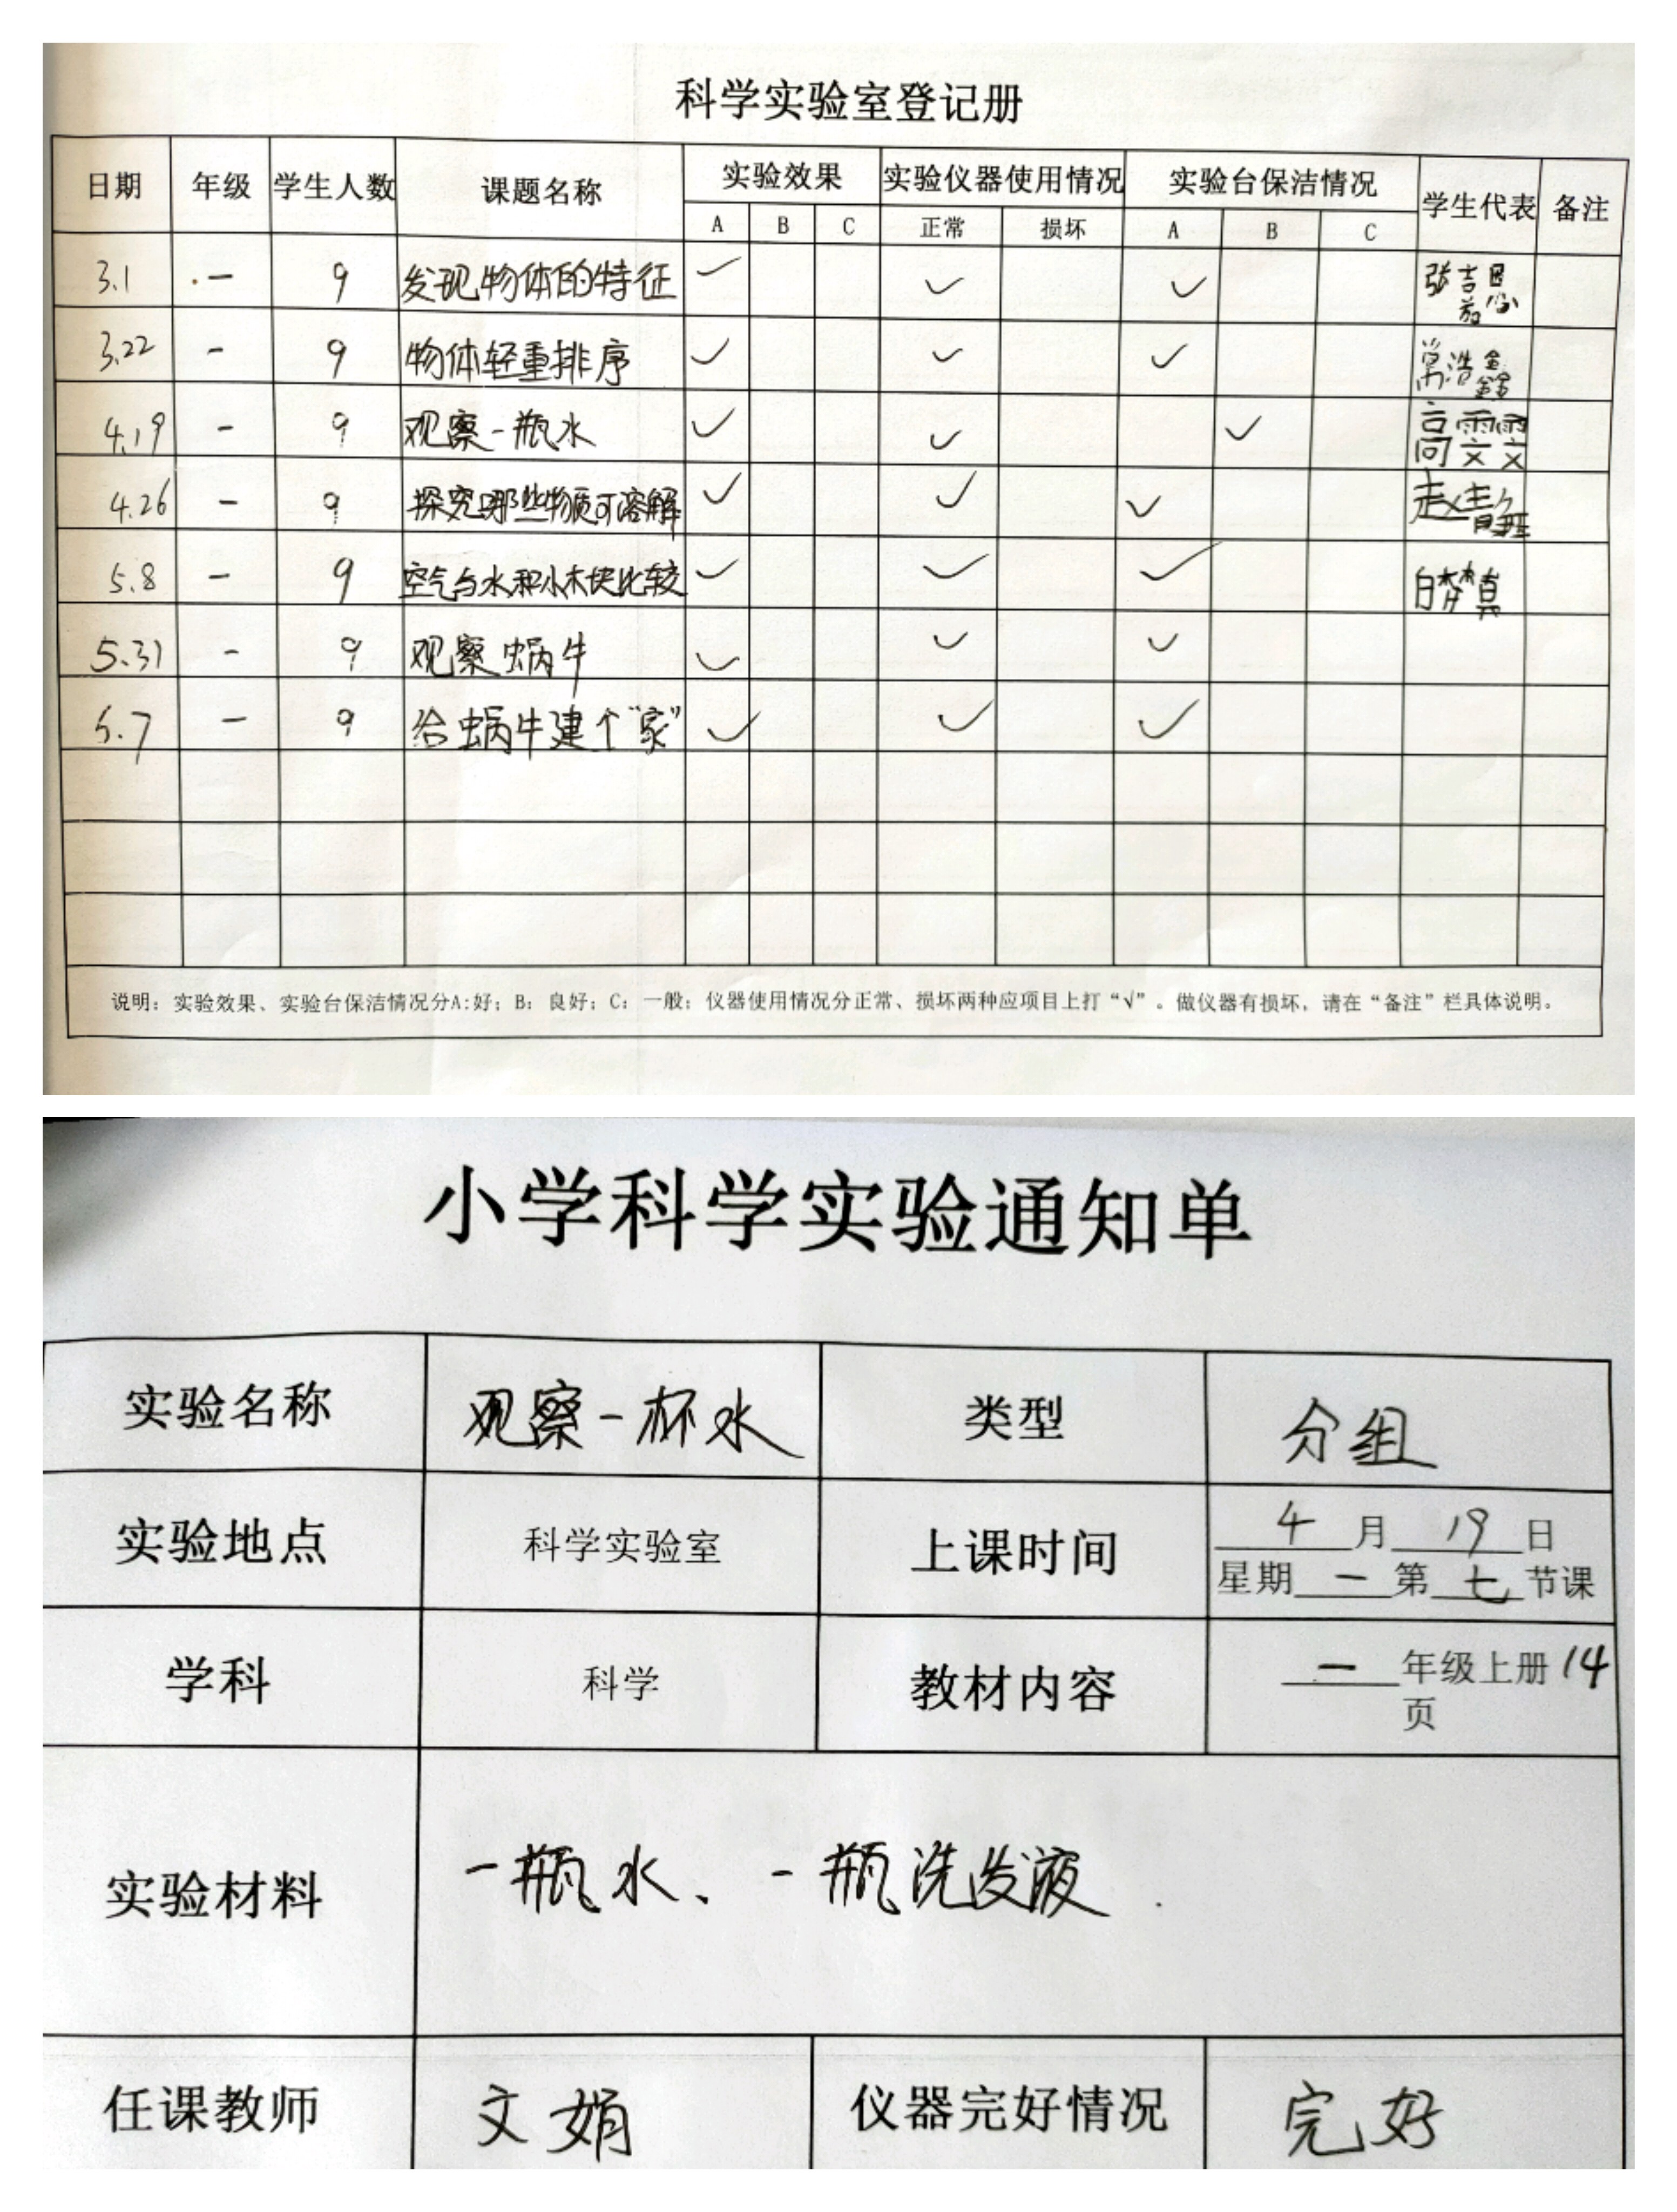 科学实验室登记册
日期 年级 学生人数 课题名称 实验效果 实验仪器使用情况 实验台保洁情况 学生代表 备注
A B C 正常 损坏 A B C
3.1 一 9 发现物体的特征 ✓ ✓ ✓ 张吉
3.22 一 9 物体轻重排序 ✓ ✓ ✓ 常浩鑫
4.19 一 9 观察一瓶水 ✓ ✓ ✓ 高雯雯
4.26 一 9 探究哪些物质可溶解 ✓ ✓ ✓ 赵静
5.8 一 9 空气与水和小木块比较 ✓ ✓ ✓ 白梦真
5.31 一 9 观察蜗牛 ✓ ✓ ✓
6.7 一 9 给蜗牛建个“家” ✓ ✓ ✓
说明：实验效果、实验台保洁情况分A:好；B：良好；C：一般；仪器使用情况分正常、损坏两种应项目上打“√”。做仪器有损坏，请在“备注”栏具体说明。
小学科学实验通知单
实验名称 观察一杯水 类型 分组
实验地点 科学实验室 上课时间 4月19日
星期一第七节课
学科 科学 教材内容 一年级上册14
页
实验材料 一瓶水、一瓶洗发液.
任课教师 文娟 仪器完好情况 完好